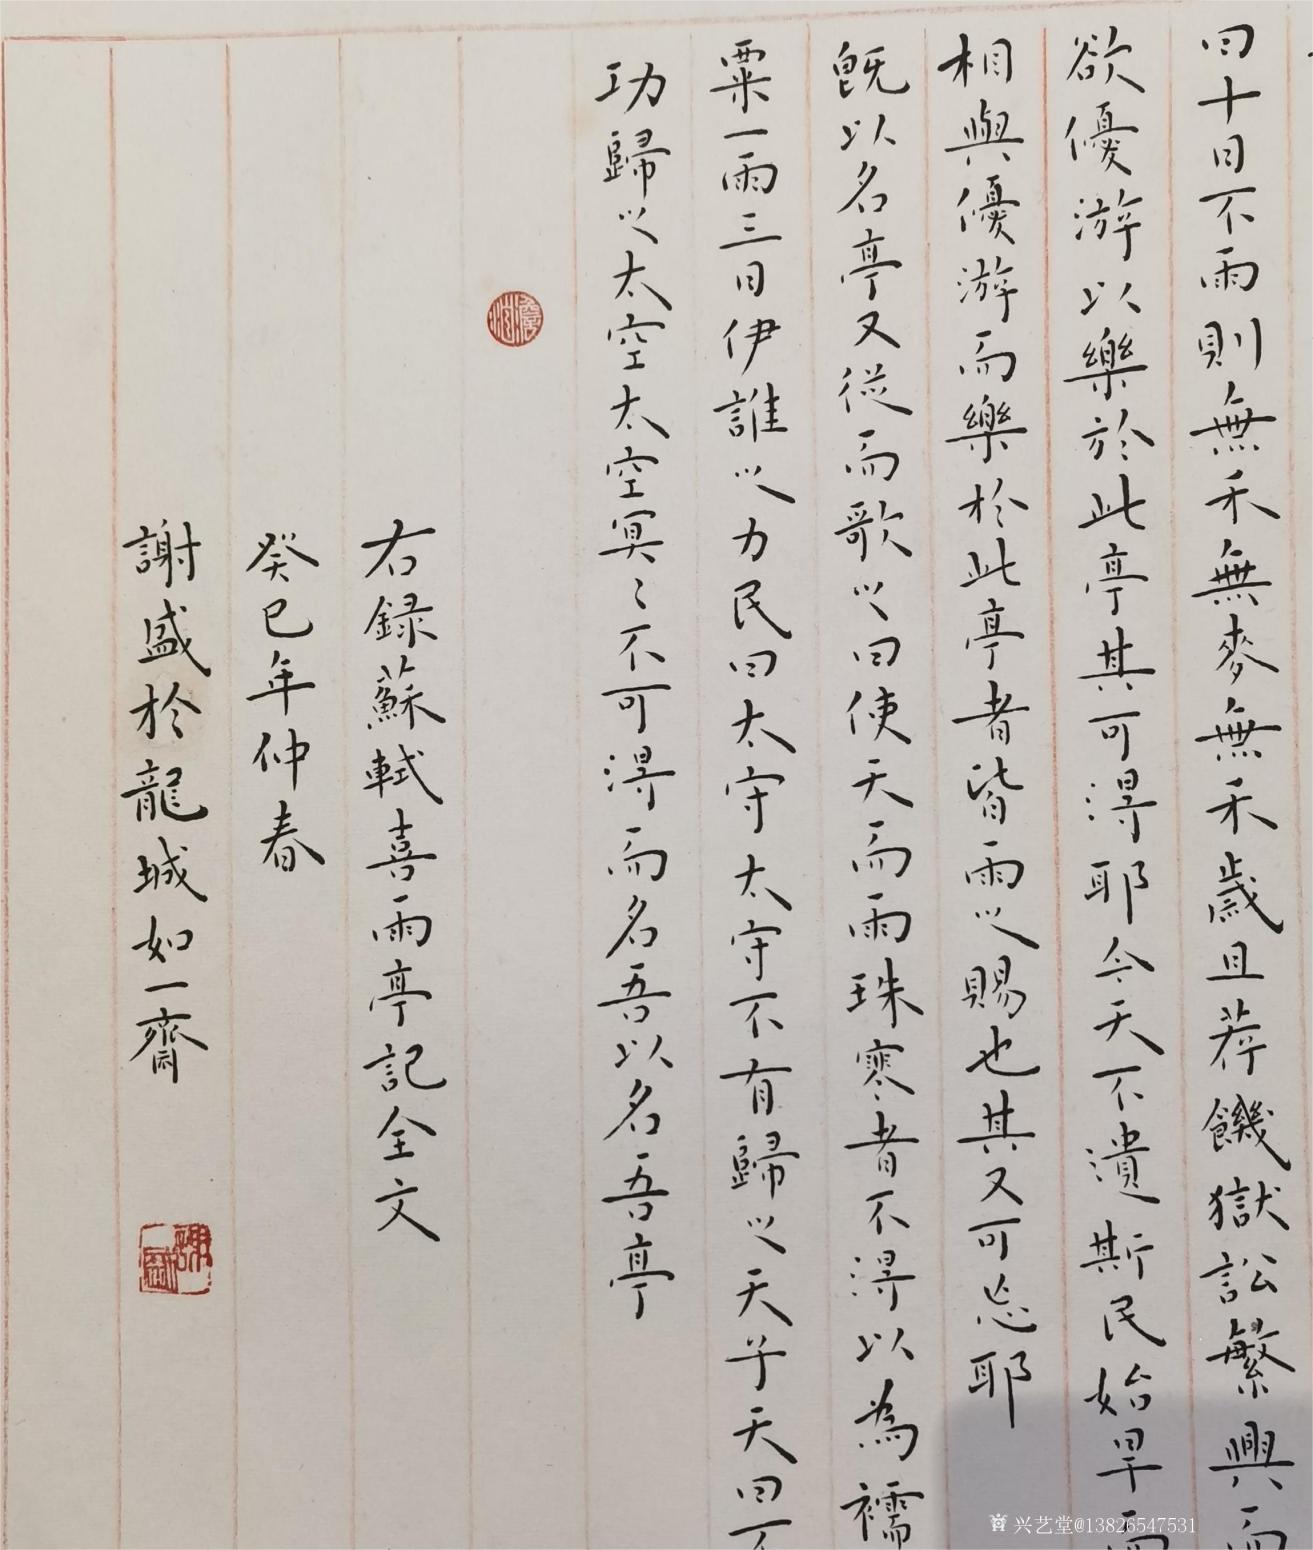 曰十日不雨則無禾無麥無禾歲且荐饑獄訟繁興而
欲優游以樂於此亭其可得耶今天不遺斯民始旱而
相與優游而樂於此亭者皆雨之賜也其又可忘耶
既以名亭又從而歌之曰使天而雨珠寒者不得以為襦
粟一雨三日伊誰之力民曰太守太守不有歸之天子天曰不
功歸之太空太空冥〻不可得而名吾以名吾亭
右録蘇軾喜雨亭記全文
癸巳年仲春
謝盛於龍城如一齋
謝盛
兴艺堂@13826547531